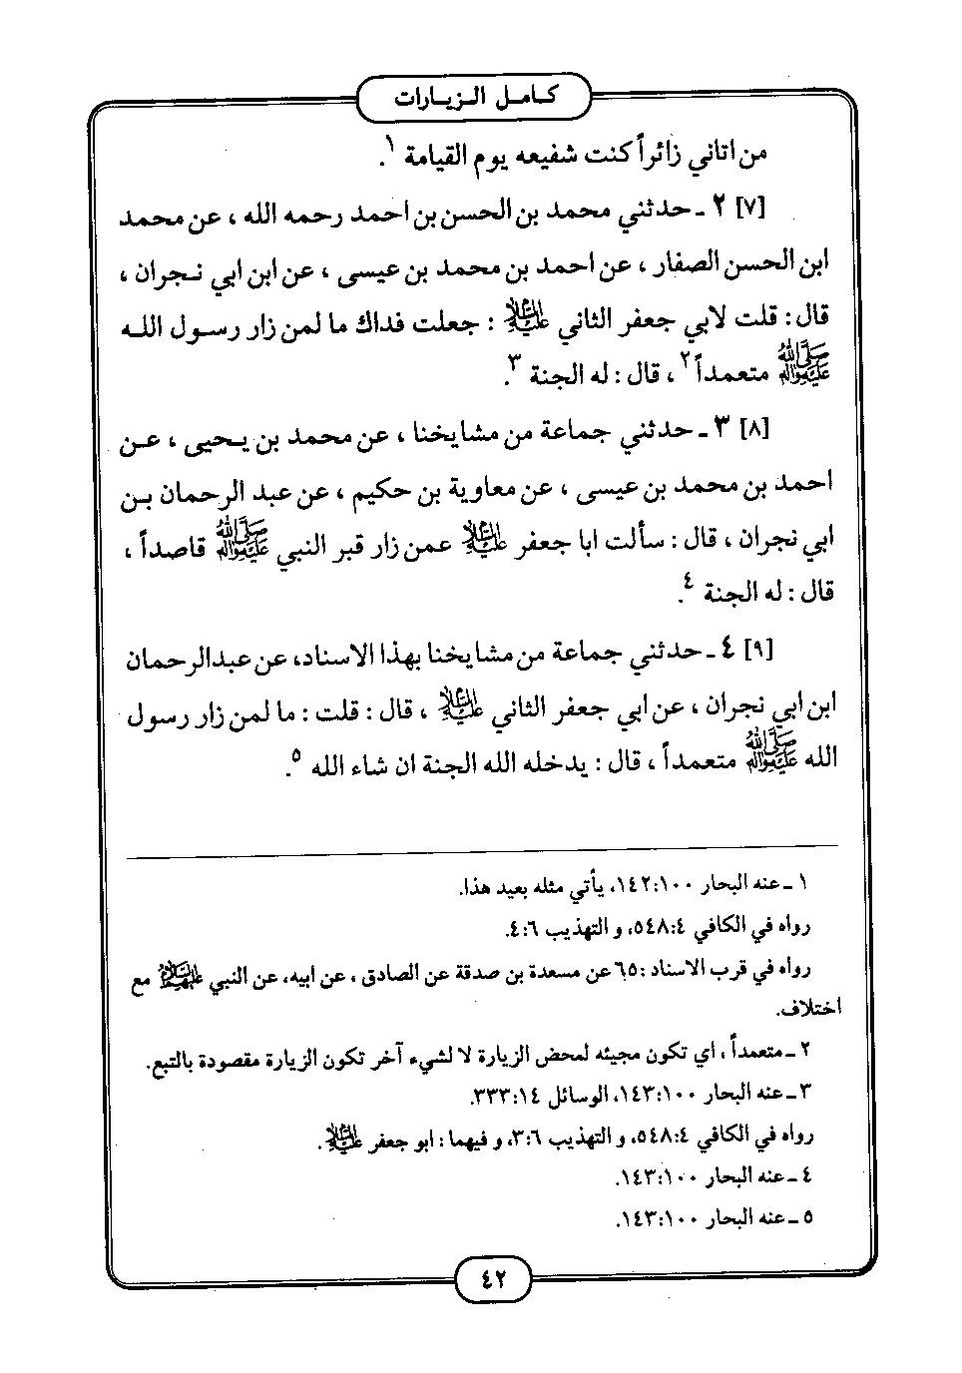 كـامـل الـزيـارات
من اتاني زائراً كنت شفيعه يوم القيامة ١.
[٧] ٢ ـ حدثني محمد بن الحسن بن احمد رحمه الله ، عن محمد
ابن الحسن الصفار ، عن احمد بن محمد بن عيسى ، عن ابن ابي نـجران ،
قال : قلت لابي جعفر الثاني عليه السلام : جعلت فداك ما لمن زار رسـول اللـه
صلى الله عليه وآله متعمداً ٢ ، قال : له الجنة ٣.
[٨] ٣ ـ حدثني جماعة من مشايخنا ، عن محمد بن يـحيى ، عـن
احمد بن محمد بن عيسى ، عن معاوية بن حكيم ، عن عبد الرحمان بـن
ابي نجران ، قال : سألت ابا جعفر عليه السلام عمن زار قبر النبي صلى الله عليه وآله قاصداً ،
قال : له الجنة ٤.
[٩] ٤ ـ حدثني جماعة من مشايخنا بهذا الاسناد، عن عبدالرحمان
ابن ابي نجران ، عن ابي جعفر الثاني عليه السلام ، قال : قلت : ما لمن زار رسول
الله صلى الله عليه وآله متعمداً ، قال : يدخله الله الجنة ان شاء الله ٥.
١ ـ عنه البحار ١٠٠:١٤٢، يأتي مثله بعيد هذا.
رواه في الكافي ٤:٥٤٨، و التهذيب ٦:٤.
رواه في قرب الاسناد :٦٥ عن مسعدة بن صدقة عن الصادق ، عن ابيه، عن النبي عليهم السلام مع
اختلاف.
٢ ـ متعمداً ، اي تكون مجيئه لمحض الزيارة لا لشيء آخر تكون الزيارة مقصودة بالتبع.
٣ ـ عنه البحار ١٠٠:١٤٣، الوسائل ١٤:٣٣٣.
رواه في الكافي ٤:٥٤٨، و التهذيب ٦:٣، و فيهما : ابو جعفر عليه السلام.
٤ ـ عنه البحار ١٠٠:١٤٣.
٥ ـ عنه البحار ١٠٠:١٤٣.
٤٢